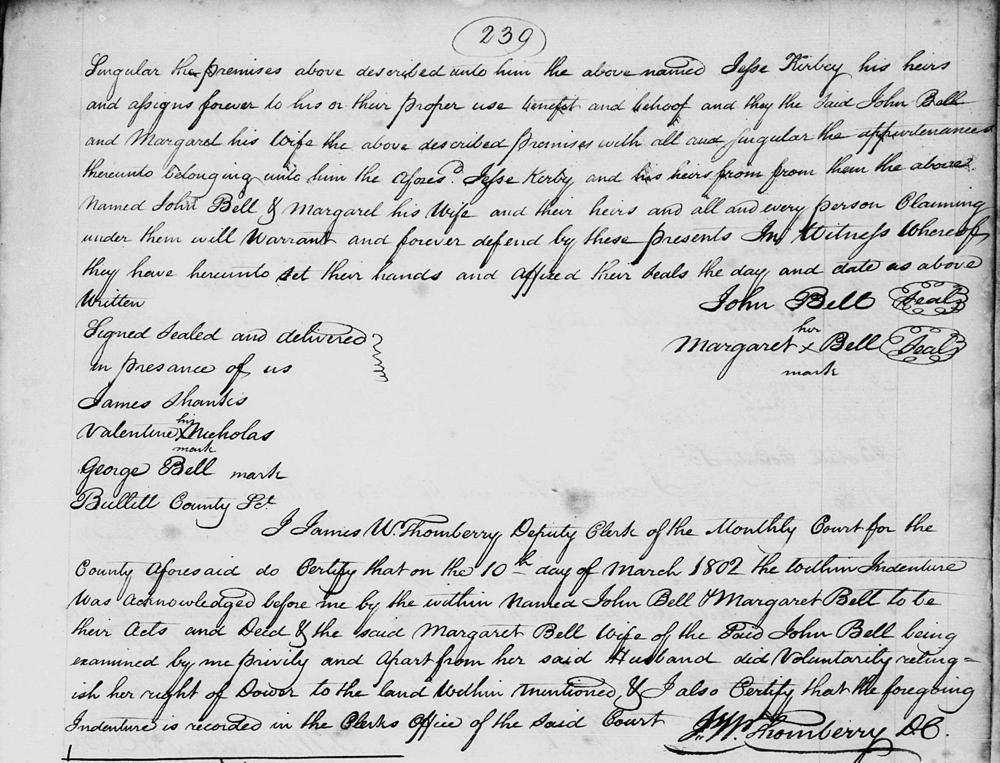 239
Singular the premises above described unto him the above named Jesse Kirbey his heirs
and assigns forever to his or their proper use benefit and behoof and they the said John Bell
and Margaret his Wife the above described premises with all and singular the appurtenances
thereunto belonging unto him the aforesd. Jesse Kerby and his heirs from from them the above
Named John Bell & Margaret his Wife and their heirs and all and every person Claiming
under them will Warrant and forever defend by these presents In Witness Whereof
they have hereunto set their hands and affixed their seals the day and date as above
Written
John Bell Seal
her
Margaret x Bell Seal
mark
Signed sealed and delivered
in presance of us
James Shanks
his
Valentine x Nicholas
mark
George Bell mark
Bullitt County Sct
I James W. Thornberry Deputy Clerk of the Monthly Court for the
County aforesaid do Certify that on the 10th day of March 1802 the within Indenture
Was acknowledged before me by the within Named John Bell & Margaret Bell to be
their Acts and Deed & the said Margaret Bell Wife of the Said John Bell being
examined by me privily and apart from her said Husband did Voluntarily relinq=
ish her right of Dower to the land Within mentioned, & I also Certify that the foregoing
Indenture is recorded in the Clerks Office of the said Court Js. W. Thornberry D.C.